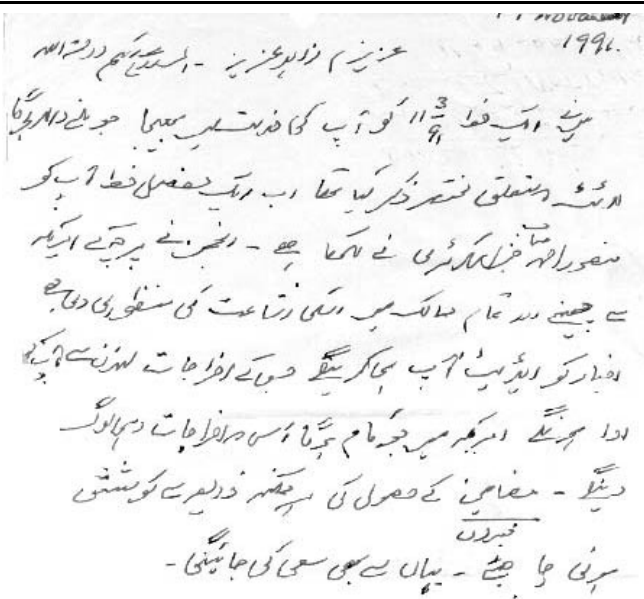 11 November
1991.
عزیزم زاہد عزیز - السلام علیکم ورحمۃ اللہ
میں نے ایک خط 11 3/91 کو آپ کی خدمت میں بھیجا جو
لائٹ متعلق مختصر ذکر کیا تھا اب ایک مفصل خط آپ کو
منصور احمد صاحب جنرل سکرٹری نے لکھا ہے - انجمن نے پرچے امریکہ
سے چھپنے اور تمام ممالک میں اسکی اشاعت کی منظوری دی ہے
اخبار کو ایڈیٹ آپ ہی کرینگے جس کے اخراجات لندن سے آپ کو
ادا ہونگے امریکہ میں جو کام ہوگا اس پر اخراجات وہی لوگ
دینگے - مضامین کے حصول کی ہر ممکنہ ذریعہ سے کوشش
خبروں
ہونی چاہئے - یہاں سے بھی سعی کی جائیگی -